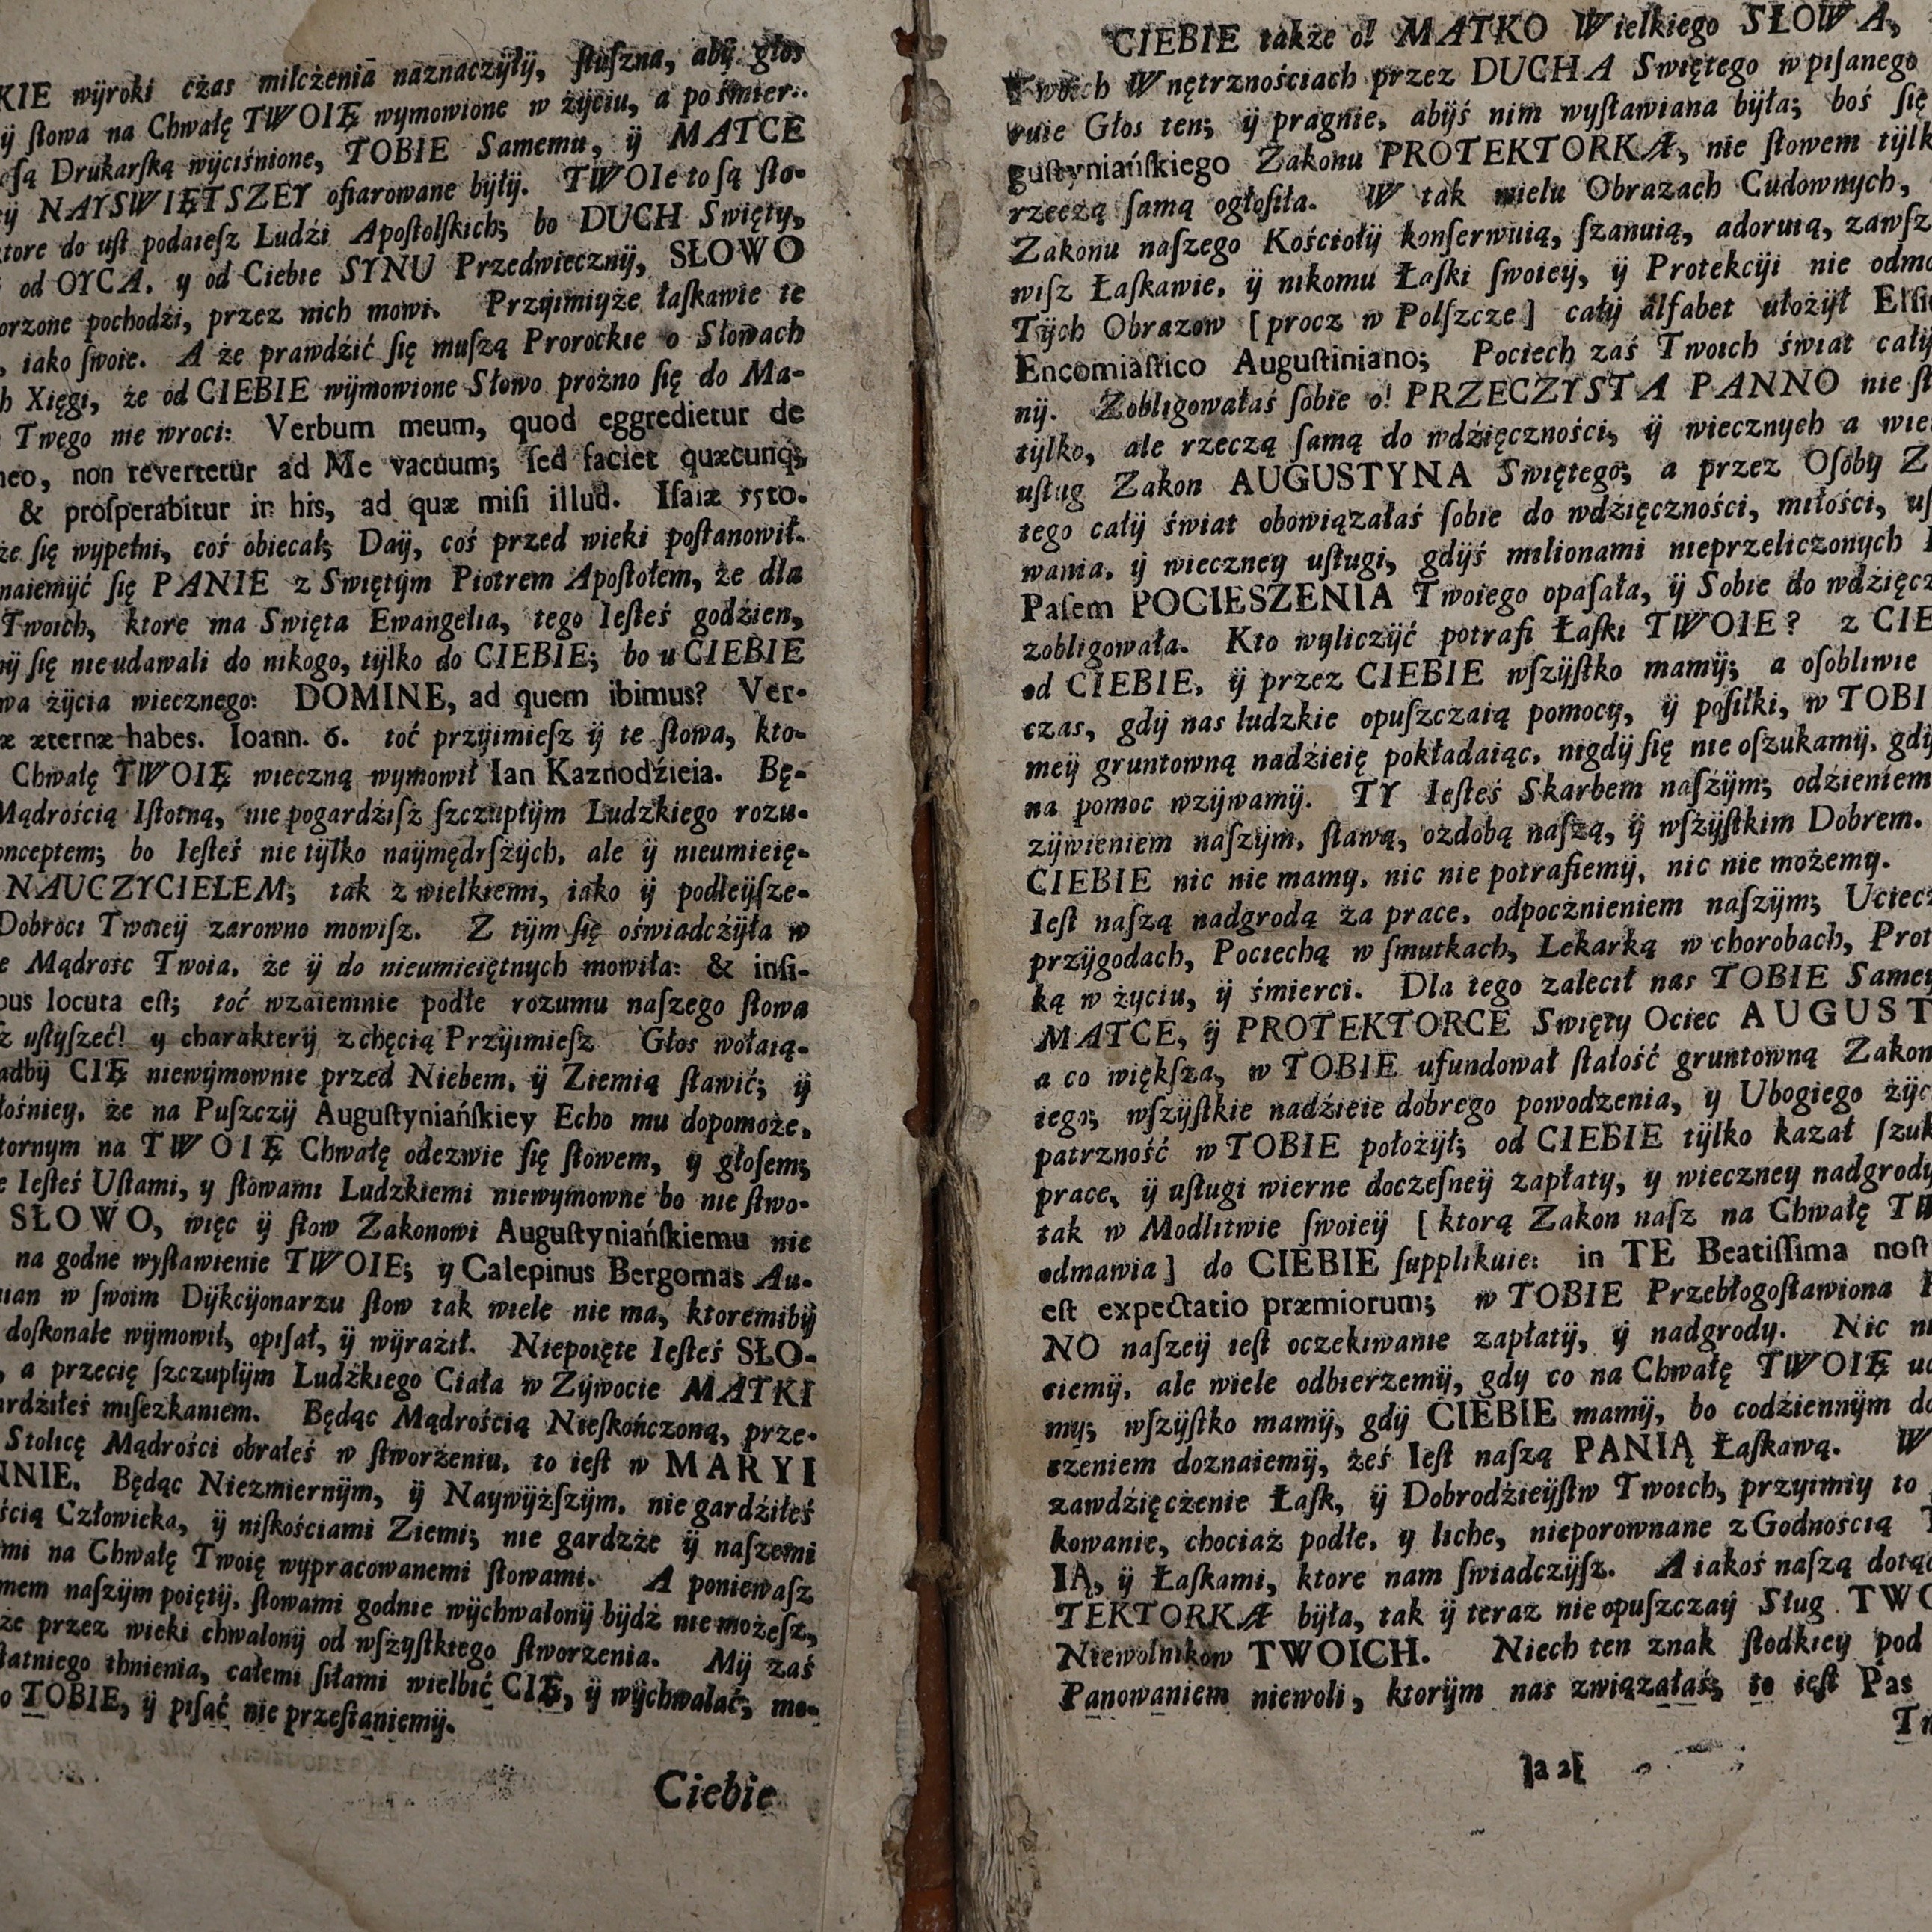 KIE wÿroki cżas milcżeniā naznacżÿłÿ, ſłuſzna, abÿ głos
ÿ ſłowa na Chwałę TWOIĘ wymowione w żÿciu, a po śmier-
ſą Drukarſką wÿciśnione, TOBIE Samemu, ÿ MATCE
ÿ NAYSWIĘTSZEY ofiarowane bÿłÿ. TWOIe to ſą ſło-
ktore do uſt podaieſz Ludźi Apoſtolſkich; bo DUCH Swięty,
od OYCA, y od Ciebie SYNU Przedwiecznÿ, SŁOWO
orzone pochodźi, przez nich mowi. Przÿimiyże łaſkawie te
, iako ſwoie. A że prawdźić ſię muſzą Prorockie o Słowach
h Xięgi, że od CIEBIE wÿmowione Słowo prożno ſię do Ma-
Twego nie wroci: Verbum meum, quod eggredietur de
meo, non revertetur ad Me vacuum; ſed faciet quæcunq;
& proſperabitur in his, ad quæ miſi illud. Iſaiæ 55to.
że ſię wypełni, coś obiecał; Daÿ, coś przed wieki poſtanowił.
naiemÿć ſię PANIE z Swiętÿm Piotrem Apoſtołem, że dla
Twoich, ktore ma Swięta Ewangelia, tego Ieſteś godźien,
bÿ ſię nieudawali do nikogo, tÿlko do CIEBIE; bo u CIEBIE
wa żÿcia wiecznego: DOMINE, ad quem ibimus? Ver-
æ æternæ habes. Ioann. 6. toć przÿimieſz ÿ te ſłowa, kto-
Chwałę TWOIĘ wieczną wymowił Ian Kaznodźieia. Bę-
Mądrością Iſtotną, nie pogardźiſż ſzczupłÿm Ludzkiego rozu-
onceptem; bo Ieſteś nie tÿlko naÿmędrſżÿch, ale ÿ nieumieię-
NAUCZYCIELEM; tak z wielkiemi, iako ÿ podłeÿſze-
Dobroci Twoieÿ zarowno mowiſz. Z tÿm ſię oświadcżÿła w
e Mądrośc Twoia, że ÿ do nieumieiętnych mowiła: & inſi-
bus locuta eſt; toć wzaiemnie podłe rozumu naſzego ſłowa
z uſłyſzeć! y charakterÿ z chęcią Przÿimieſz Głos wołaią-
adbÿ CIĘ niewÿmownie przed Niebem, ÿ Ziemią ſławić; ÿ
łośniey, że na Puſzczÿ Auguſtyniańſkiey Echo mu dopomoże,
tornym na TWOIĘ Chwałę odezwie ſię ſłowem, ÿ głoſem;
e Ieſteś Uſtami, y ſłowami Ludzkiemi niewymowne bo nie ſtwo-
SŁOWO, więc ÿ ſłow Zakonowi Auguſtyniańſkiemu nie
na godne wyſławienie TWOIE; y Calepinus Bergomas Au-
nian w ſwoim Dÿkcÿonarzu ſłow tak wiele nie ma, ktoremibÿ
doſkonale wÿmowił, opiſał, ÿ wÿraźił. Niepoięte Ieſteś SŁO-
, a przecię ſzczupłÿm Ludźkiego Ciała w Zÿwocie MATKI
ardźiłeś miſezkaniem. Będąc Mądrością Nieſkończoną, prze-
Stolicę Mądrości obrałeś w ſtworżeniu, to ieſt w MARYI
NNIE. Będąc Niezmiernÿm, ÿ Naywÿżſzÿm, nie gardźiłeś
ścią Człowieka, ÿ niſkościami Ziemi; nie gardzże ÿ naſzemi
mi na Chwałę Twoię wypracowanemi ſłowami. A poniewaſz
mem naſzÿm poiętÿ, ſłowami godnie wÿchwalonÿ bÿdź nie możeſz,
że przez wieki chwalonÿ od wſżyſtkiego ſtworzenia. Mÿ zaś
ſtatniego thnienia, całemi ſiłami wielbić CIĘ, ÿ wÿchwalać; mo-
o TOBIE, ÿ piſać nie przeſtaniemÿ.
Ciebie
CIEBIE także o! MATKO Wielkiego SŁOWA,
Twoich Wnętrznościach przez DUCHA Swiętego wpiſanego
ruie Głos ten; ÿ pragnie, abÿś nim wyſławiana bÿła; boś ſię
guſtyniańſkiego Zakonu PROTEKTORKĄ, nie ſłowem tÿlk
rzeczą ſamą ogłoſiła. W tak wielu Obrazach Cudownych,
Zakonu naſzego Kościołÿ konſerwuią, ſzanuią, adoruią, zawſz
wiſz Łaſkawie, ÿ nikomu Łaſki ſwoieÿ, ÿ Protekcÿi nie odmo
Tÿch Obrazow [procz w Polſzcze] całÿ alfabet ułożÿł Elſi
Encomiaſtico Auguſtiniano; Pociech zaś Twoich świat całÿ
nÿ. Zobligowałaś ſobie o! PRZECZYSTA PANNO nie ſł
tÿlko, ale rzeczą ſamą do wdźięczności, ÿ wiecznych a wie
uſług Zakon AUGUSTYNA Swiętego; a przez Oſoby Z
tego całÿ świat obowiązałaś ſobie do wdźięczności, miłości, uſ
wania, ÿ wieczney uſługi, gdÿś milionami nieprzeliczonych
Paſem POCIESZENIA Twoiego opaſała, ÿ Sobie do wdźięcz
zobligowała. Kto wyliczÿć potrafi Łaſki TWOIE? z CIE
od CIEBIE, ÿ przez CIEBIE wſzÿſtko mamÿ; a oſobliwie
czas, gdÿ nas ludzkie opuſzczaią pomocy, ÿ poſiłki, w TOBI
meÿ gruntowną nadźieię pokładaiąc, nigdÿ ſię nie oſzukamÿ, gdÿ
na pomoc wzÿwamÿ. TY Ieſteś Skarbem naſzÿm; odźieniem
zÿwieniem naſzÿm, ſławą, ozdobą naſzą, ÿ wſżÿſtkim Dobrem.
CIEBIE nic nie mamy, nic nie potrafiemÿ, nic nie możemy.
Ieſt naſzą nadgrodą za prace, odpocżnieniem naſzÿm; Uciecz
przÿgodach, Pociechą w ſmutkach, Lekarką w chorobach, Prot
ką w życiu, ÿ śmierci. Dla tego zalecił nas TOBIE Samey
MATCE, ÿ PROTEKTORCE Swięty Ociec AUGUST
a co większa, w TOBIE ufundował ſtałość gruntowną Zakon
iego; wſzÿſtkie nadźieie dobrego powodzenia, y Ubogiego żÿc
patrzność w TOBIE położÿł; od CIEBIE tÿlko kazał ſzuk
prace, ÿ uſługi wierne doczeſneÿ zapłaty, y wieczney nadgrody
tak w Modlitwie ſwoieÿ [ktorą Zakon naſz na Chwałę TW
odmawia] do CIEBIE ſupplikuie: in TE Beatiſſima noſt
eſt expectatio præmiorum; w TOBIE Przebłogoſławiona
NO naſzeÿ ieſt oczekiwanie zapłatÿ, ÿ nadgrody. Nic n
ciemÿ, ale wiele odbierzemÿ, gdy co na Chwałę TWOIĘ uc
my; wſzÿſtko mamÿ, gdÿ CIEBIE mamÿ, bo codźiennÿm do
czeniem doznaiemÿ, żeś Ieſt naſzą PANIĄ Łaſkawą. W
zawdźięcżenie Łaſk, ÿ Dobrodźieÿſtw Twoich, przyimiy to
kowanie, chociaż podłe, y liche, nieporownane z Godnością
IĄ, ÿ Łaſkami, ktore nam ſwiadczÿſz. A iakoś naſzą dotąd
TEKTORKĄ bÿła, tak ÿ teraz nie opuſzczaÿ Sług TWO
Niewolnikow TWOICH. Niech ten znak ſłodkiey pod
Panowaniem niewoli, ktorÿm nas związałaś; to ieſt Pas
Tw
]a2[